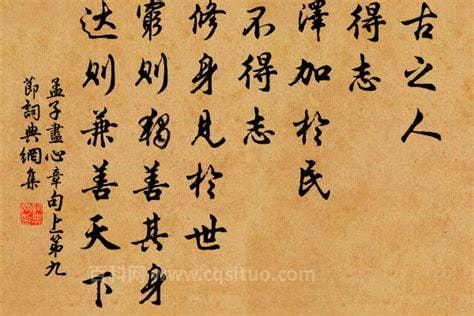 古之人
得志
澤加於民
不得志
修身見於世
窮則獨善其身
达則兼善天下
孟子盡心章句上第九
節詞典網集
百科网 www.cqsituo.com